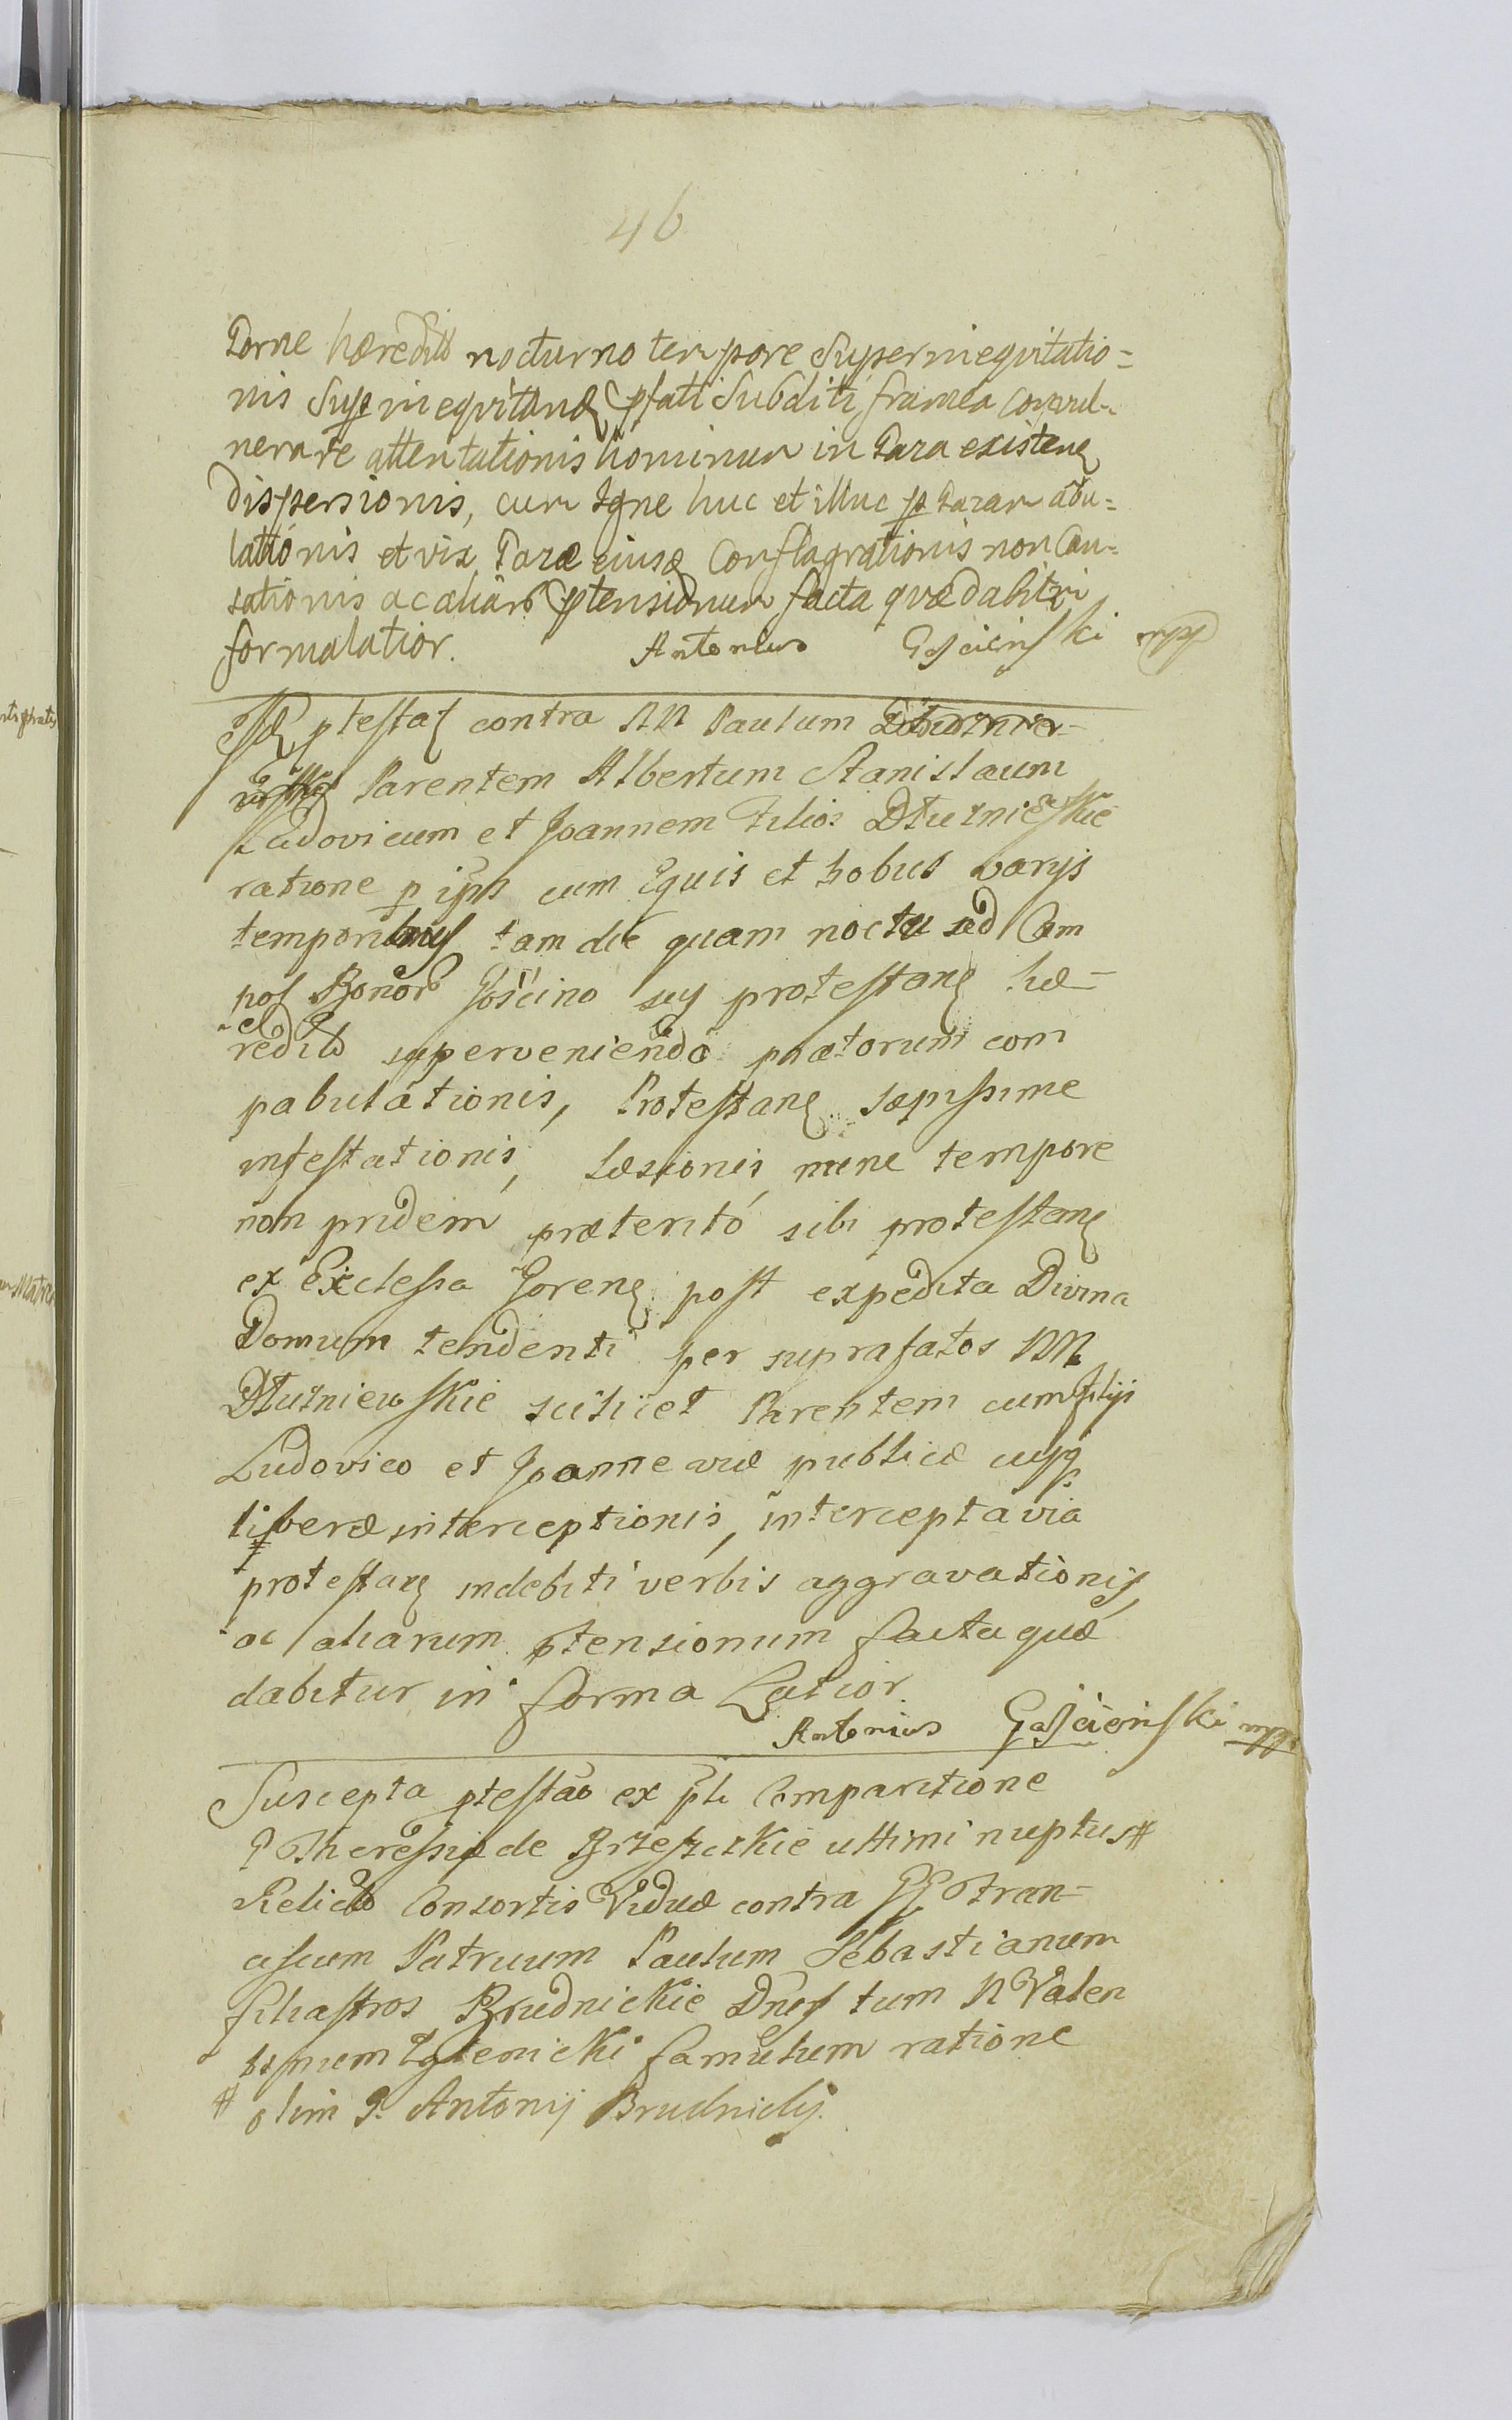 46
Torne hæredits nocturno tempore superinequitatio=
nis superinequitand pfati Subditi, framea convul-
nerare attentationis hominum in Taza existen
dispersionis, cum Igne huc et illuc p Tazam adu-
lationis et vix Tazæ eiusd Conflagrationis non Cau-
sationis ac aliarō ptensionum facta quæ dabitri
formalatior. Antonius Gościeński mpp
Id ptestat contra NN Paulum
Parentem Albertum Stanislaum
Ludovicum et Joannem Filios Dłużniewskie
ratione p ipsos cum Equis et bobus varijs
temporibus tam die quam noctu ad Cam
pos Bonorō Gościno suy protestan hæ-
redits superveniendo pratorum com
pabulationis, Protestan sæpissime
infestationis, Læsionis, nunc tempore
non pridem præteritó sibi protestan
ex Ecclesia Goren post expedita Divina
Domum tendenti per suprafatos NN
Dłużniewskie scilicet Parentem cum filijs
Ludovico et Joanne viæ publicæ cuiq
liberæ interceptionis, intercepta via
protestan indebiti verbis aggravationis,
ac aliarum ptensionum facta quæ
dabitur in forma Latior.
Antonius Gościeński mpp
Suscepta ptestaō ex pli Comparitione
G Theressiæ de Brzeszczkie ultimi nuptus #
Relictō Consortis Viduæ contra GG Fran-
ciscum Patruum Paulum Sebastianum
filiastros Brudnickie Dnos tum N Valen
tinum Zglenicki famulum ratione
# olim G. Antonij Brudnicky.